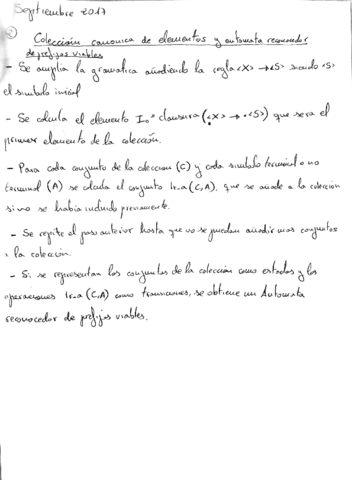 Septiembre 2017
② Colección canonica de elementos y automata reconocedor
de prefijos viables
- Se amplia la gramatica añadiendo la regla <X> → <S> siendo <S>
el simbolo inicial
- Se calcula el elemento I₀ = clausura (<X> → • <S>) que sera el
primer elemento de la colección.
- Para cada conjunto de la coleccion (C) y cada simbolo terminal o no
terminal (A) se calcula el conjunto Ir-a (C,A), que se añade a la coleccion
si no se habia incluido previamente.
- Se repite el paso anterior hasta que no se puedan añadir mas conjuntos
a la colección.
- Si se representan los conjuntos de la colección como estados y las
operaciones Ir-a (C,A) como transiciones, se obtiene un Automata
reconocedor de prefijos viables.